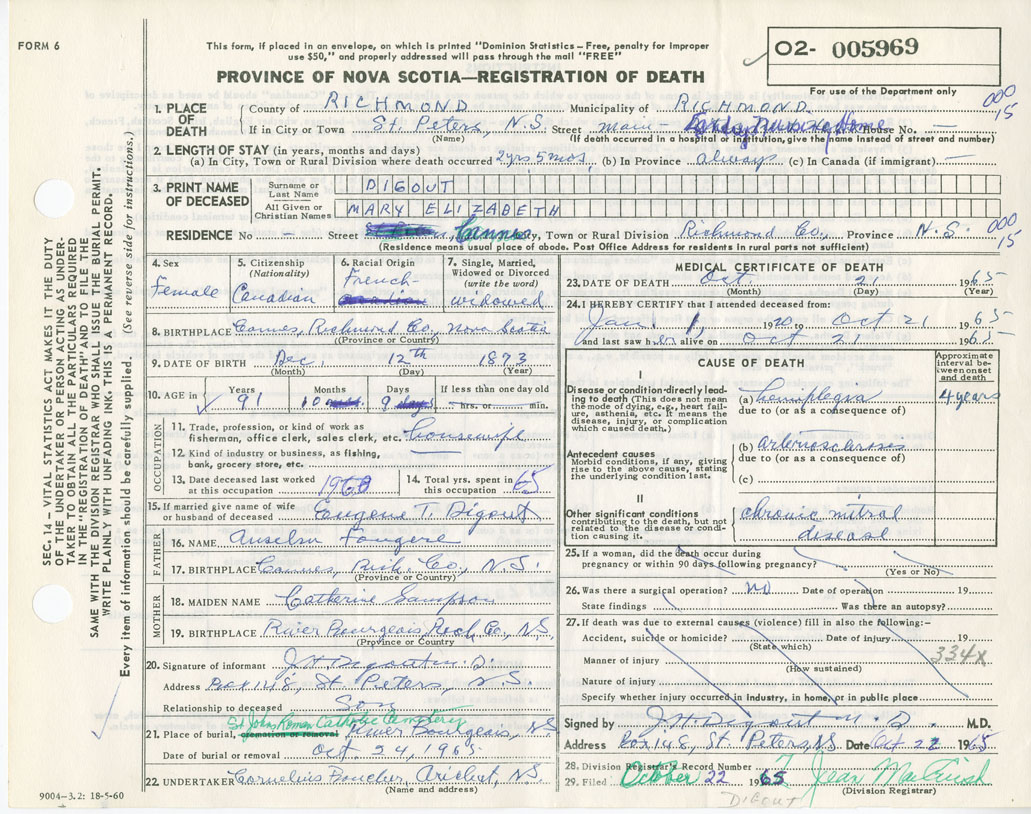 FORM 6
This form, if placed in an envelope, on which is printed "Dominion Statistics – Free, penalty for improper
use $50," and properly addressed will pass through the mail "FREE"
PROVINCE OF NOVA SCOTIA—REGISTRATION OF DEATH
02- 005969
For use of the Department only
000
15
SEC. 14 – VITAL STATISTICS ACT MAKES IT THE DUTY
OF THE UNDERTAKER OR PERSON ACTING AS UNDER-
TAKER TO OBTAIN ALL THE PARTICULARS REQUIRED
IN THE "REGISTRATION OF DEATH" AND TO FILE THE
SAME WITH THE DIVISION REGISTRAR WHO SHALL ISSUE THE BURIAL PERMIT.
WRITE PLAINLY WITH UNFADING INK. THIS IS A PERMANENT RECORD.
Every item of information should be carefully supplied. (See reverse side for instructions.)
1. PLACE OF DEATH
County of RICHMOND Municipality of RICHMOND
If in City or Town St. Peters, N.S. Street main – Nursing Home House No. —
(Name) (If death occurred in a hospital or institution, give the name instead of street and number)
2. LENGTH OF STAY (in years, months and days)
(a) In City, Town or Rural Division where death occurred 2 yrs 5 mos (b) In Province always (c) In Canada (if immigrant). —
3. PRINT NAME OF DECEASED
Surname or Last Name DIGOUT
All Given or Christian Names MARY ELIZABETH
000
15
RESIDENCE No — Street City, Town or Rural Division Richmond Co. Province N.S.
(Residence means usual place of abode. Post Office Address for residents in rural parts not sufficient)
4. Sex Female
5. Citizenship (Nationality) Canadian
6. Racial Origin French
7. Single, Married, Widowed or Divorced (write the word) widowed
8. BIRTHPLACE Cannes, Richmond Co., Nova Scotia
(Province or Country)
9. DATE OF BIRTH Dec. 12th 1873
(Month) (Day) (Year)
10. AGE in Years 91 Months 10 Days 9 If less than one day old — hrs. or — min.
OCCUPATION
11. Trade, profession, or kind of work as
fisherman, office clerk, sales clerk, etc. housewife
12. Kind of industry or business, as fishing,
bank, grocery store, etc.
13. Date deceased last worked at this occupation 1960
14. Total yrs. spent in this occupation 65
15. If married give name of wife or husband of deceased Eugene T. Digout
FATHER
16. NAME Anselm Fougere
17. BIRTHPLACE Cannes, Rich. Co., N.S.
(Province or Country)
MOTHER
18. MAIDEN NAME Catherine Sampson
19. BIRTHPLACE River Bourgeois Rich. Co., N.S.
(Province or Country)
20. Signature of informant J.H. Digout M.D.
Address Box 148, St Peters, N.S.
Relationship to deceased Son
St Johns Roman Catholic Cemetery
21. Place of burial, cremation or removal River Bourgeois, NS
Date of burial or removal Oct 24, 1965
22. UNDERTAKER Cornelius Boucher, Arichat, NS
(Name and address)
9004–3.2: 18-5-60
MEDICAL CERTIFICATE OF DEATH
23. DATE OF DEATH Oct. 21 1965
(Month) (Day) (Year)
24. I HEREBY CERTIFY that I attended deceased from:
Jan. 1, 1920 to Oct 21 1965
and last saw her alive on Oct 21 1965
CAUSE OF DEATH
Approximate interval between onset and death
I
Disease or condition directly lead-
ing to death (This does not mean
the mode of dying, e.g., heart failure,
asthenia, etc. It means the
disease, injury, or complication
which caused death.)
(a) hemiplegia 4 years
due to (or as a consequence of)
Antecedent causes
Morbid conditions, if any, giving
rise to the above cause, stating
the underlying condition last.
(b) arteriosclerosis
due to (or as a consequence of)
(c)
II
Other significant conditions
contributing to the death, but not
related to the disease or condi-
tion causing it.
chronic mitral
disease
25. If a woman, did the death occur during
pregnancy or within 90 days following pregnancy?
(Yes or No)
26. Was there a surgical operation? no Date of operation 19
State findings Was there an autopsy?
27. If death was due to external causes (violence) fill in also the following:–
Accident, suicide or homicide? Date of injury 19
(State which)
334X
Manner of injury
(How sustained)
Nature of injury
Specify whether injury occurred in industry, in home, or in public place
Signed by J.H. Digout M.D. M.D.
Address Box 148, St Peters, NS Date Oct 22 1965
28. Division Registrar's Record Number 7
29. Filed October 22 1965
(Division Registrar)
DIGOUT